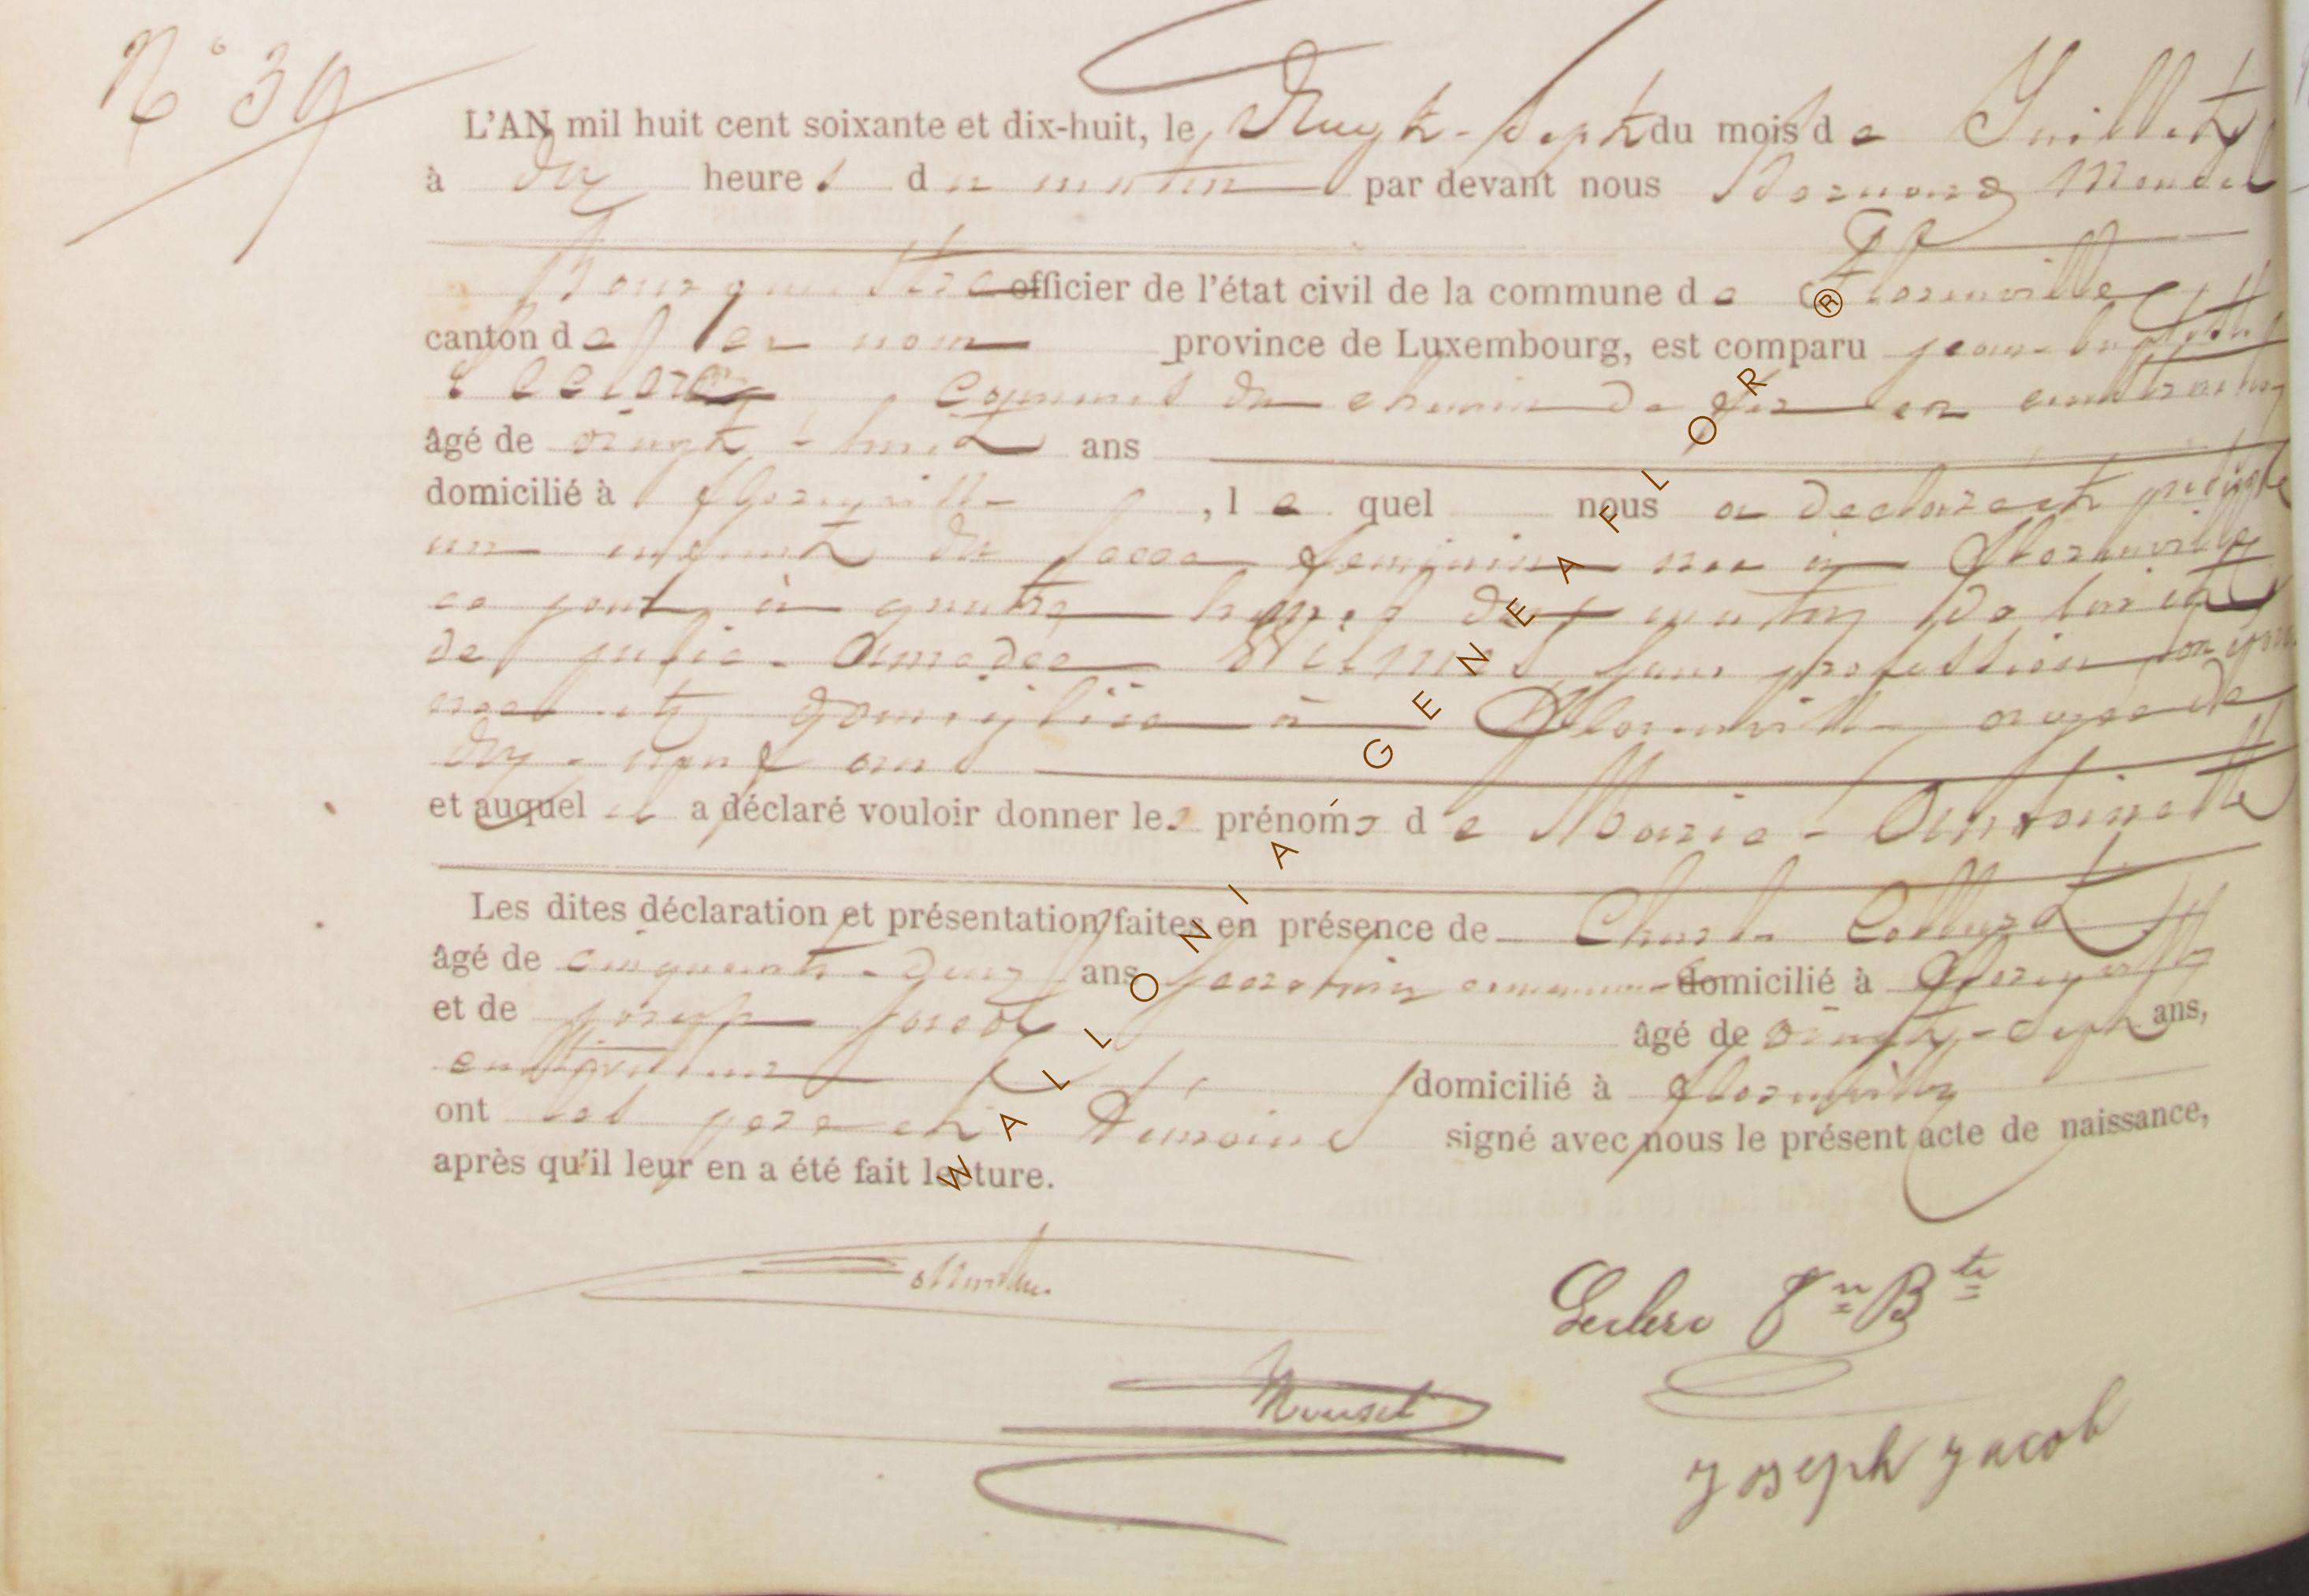 N° 39
L'AN mil huit cent soixante et dix-huit, le Vingt-Sept du mois de Juillet
à dix heures du matin par devant nous Mousel
Bourgmestre officier de l'état civil de la commune de Florenville
canton de ce nom province de Luxembourg, est comparu jean-baptiste
Leclerc commis du chemin de fer en construction
âgé de vingt-huit ans
domicilié à florenville, lequel nous a déclaré et présenté
un enfant du sexe feminin née à Florenville
ce jour à quatre heures du matin de lui et
de julie-Amadée sans profession son épouse
née et domiciliée à Florenville agée de
dix-neuf ans
et auquel il a déclaré vouloir donner les prénoms de Marie-Antoinette
Les dites déclaration et présentation faites en présence de Charles
âgé de cinquante-deux ans secretaire communal domicilié à Florenville
et de joseph jacob âgé de vingt-sept ans,
domicilié à florenville
ont les père et témoins signé avec nous le présent acte de naissance,
après qu'il leur en a été fait lecture.
Leclerc Jn Bte
Mousel
Joseph Jacob
WALLONIA GENEAFLOR ®